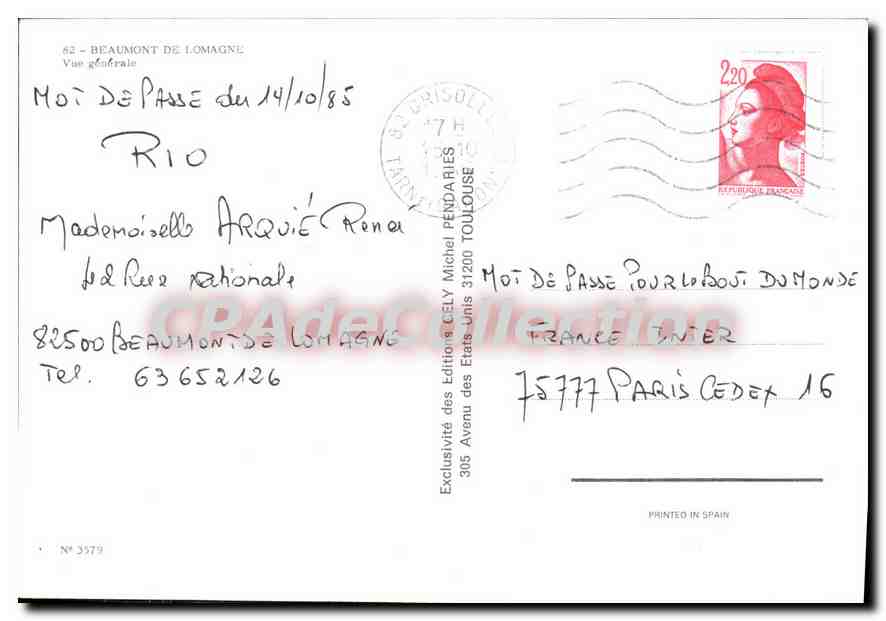 82 - BEAUMONT DE LOMAGNE
Vue générale
MOT DE PASSE du 14/10/85
RIO
Mademoiselle ARQUIÉ Renée
Rue Nationale
82500 BEAUMONT DE LOMAGNE
Tel. 63652126
N° 3579
Exclusivité des Editions CELY Michel PENDARIES
305 Avenu des Etats Unis 31200 TOULOUSE
82 GRISOLLES
7 H
TARN
2,20
REPUBLIQUE FRANÇAISE
MOT DE PASSE POUR LE BOUT DU MONDE
FRANCE INTER
75777 PARIS CEDEX 16
PRINTED IN SPAIN
CPAdeCollection.com